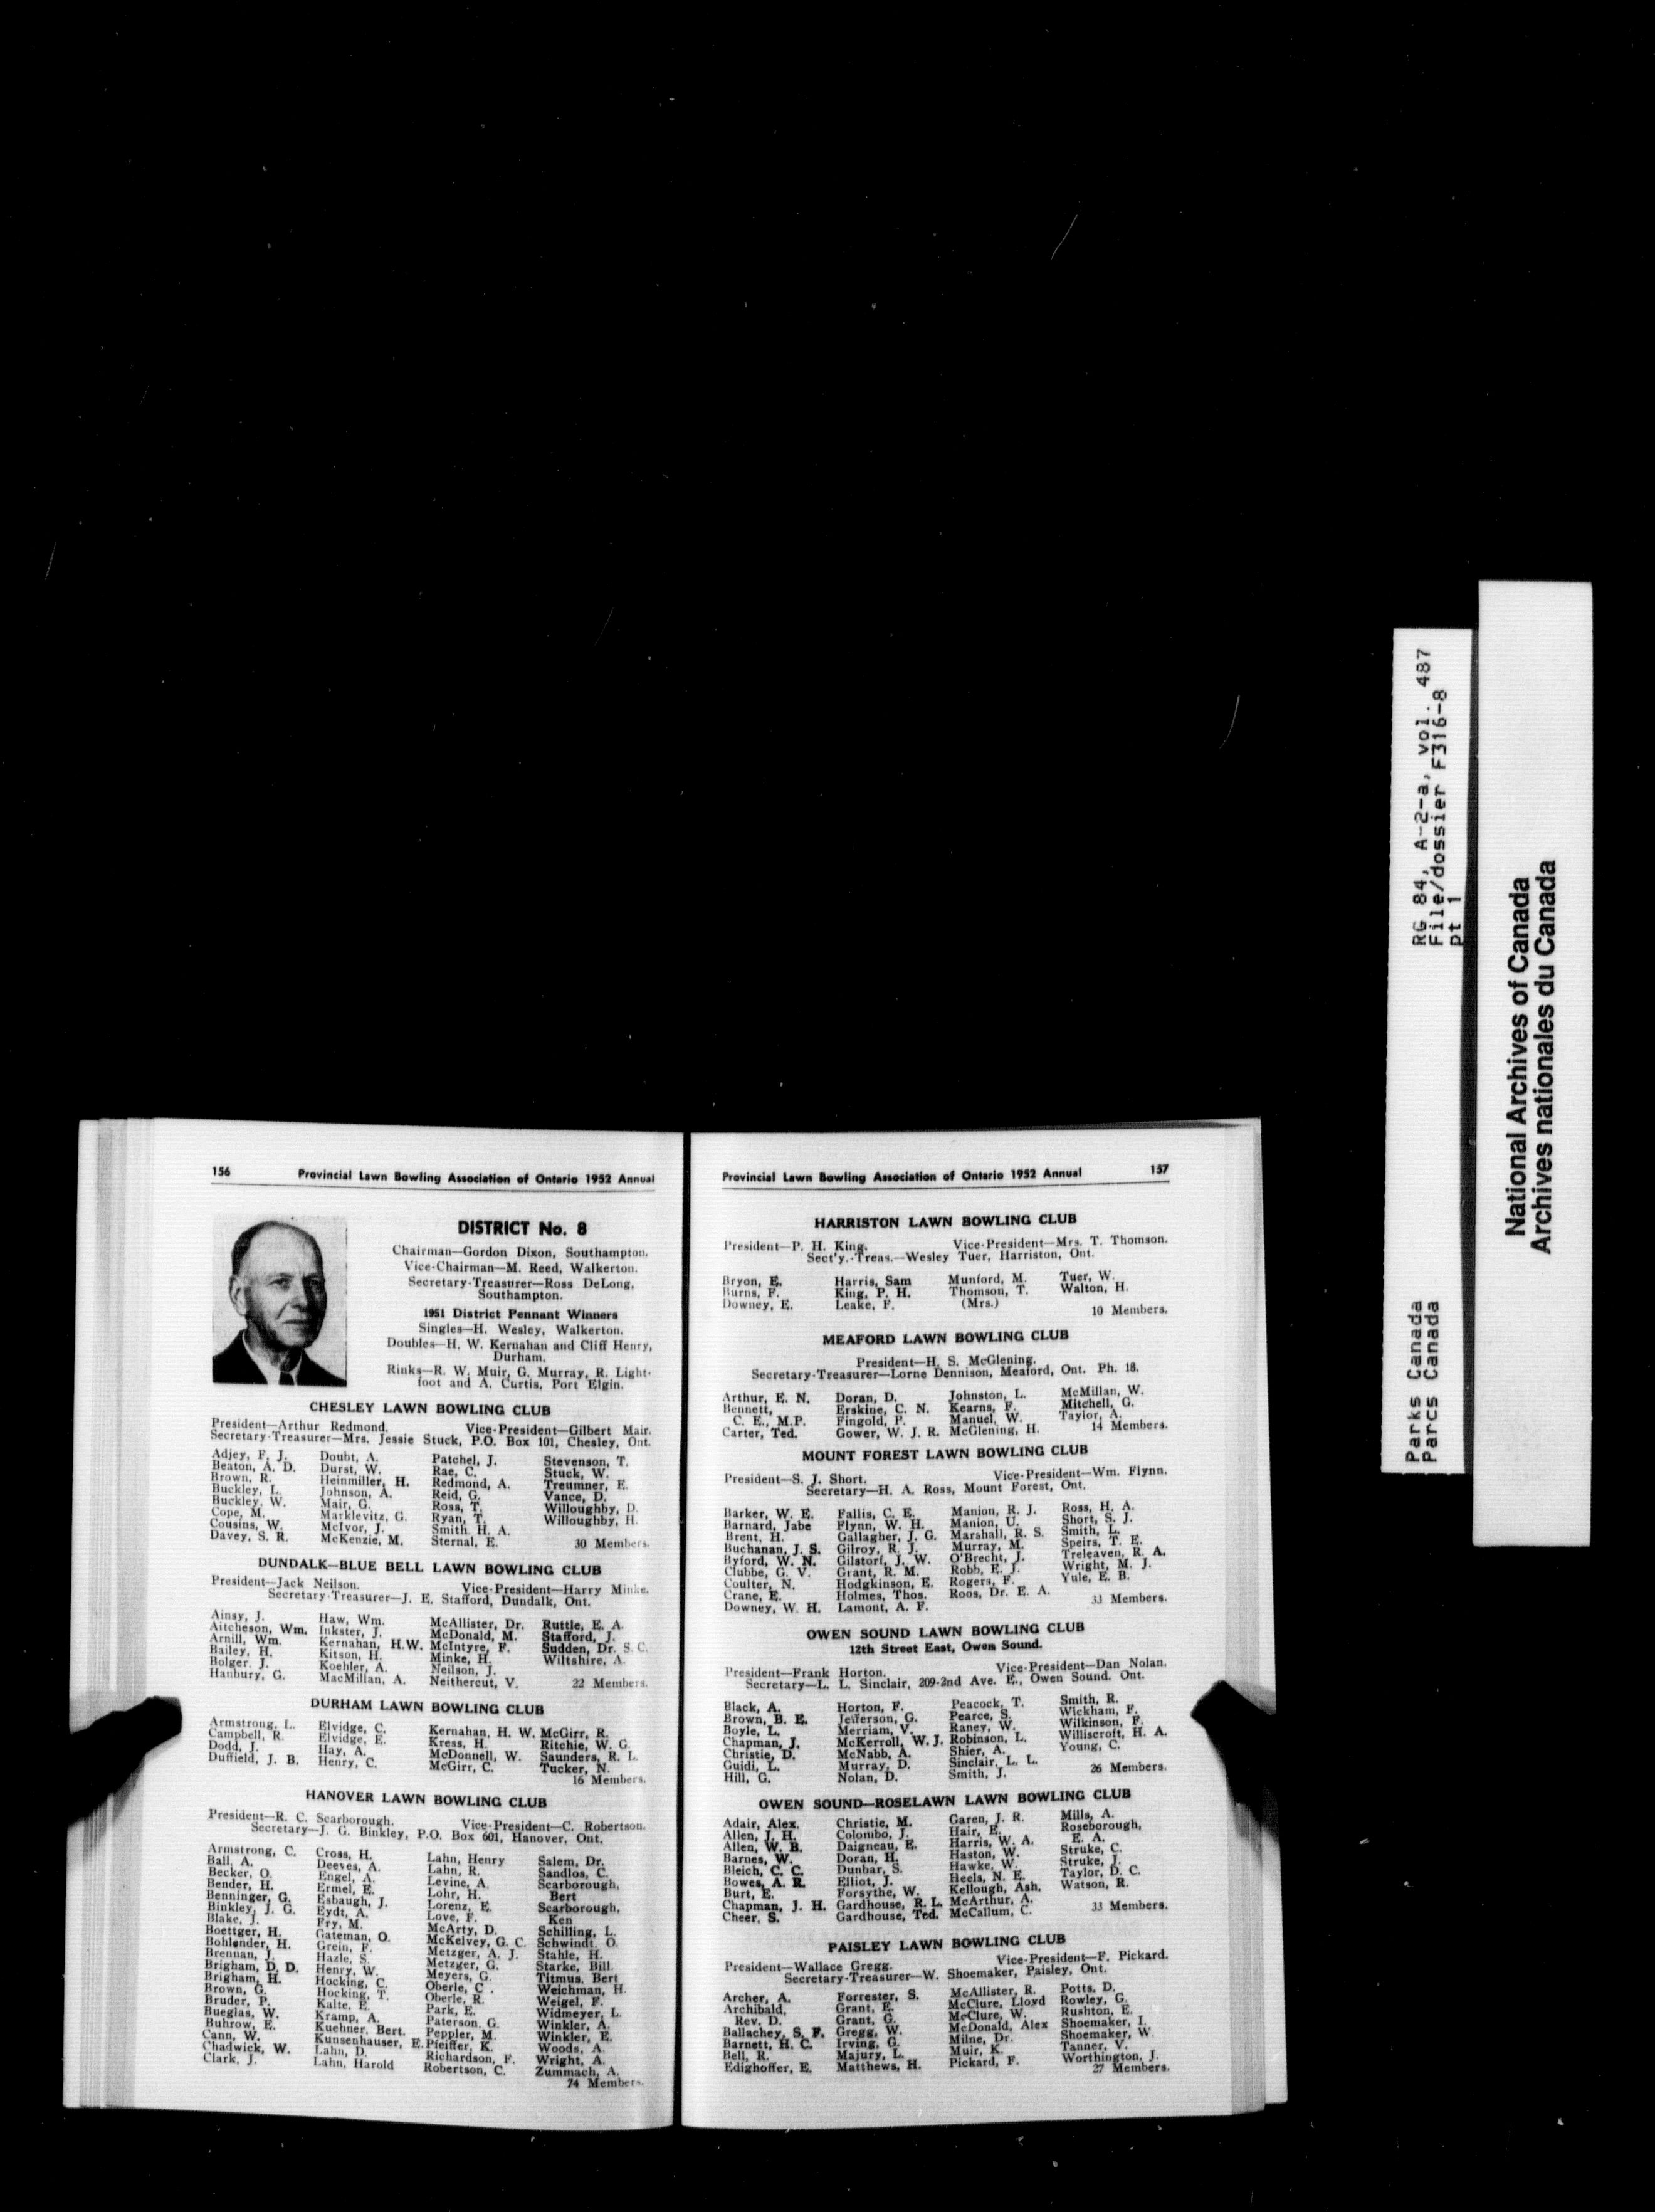 156 Provincial Lawn Bowling Association of Ontario 1952 Annual
DISTRICT No. 8
Chairman—Gordon Dixon, Southampton.
Vice-Chairman—M. Reed, Walkerton.
Secretary-Treasurer—Ross DeLong,
Southampton.
1951 District Pennant Winners
Singles—H. Wesley, Walkerton.
Doubles—H. W. Kernahan and Cliff Henry,
Durham.
Rinks—R. W. Muir, G. Murray, R. Light-
foot and A. Curtis, Port Elgin.
CHESLEY LAWN BOWLING CLUB
President—Arthur Redmond. Vice-President—Gilbert Mair.
Secretary-Treasurer—Mrs. Jessie Stuck, P.O. Box 101, Chesley, Ont.
Adjey, F. J. Doubt, A. Patchel, J. Stevenson, T.
Beaton, A. D. Durst, W. Rae, C. Stuck, W.
Brown, R. Heinmiller, H. Redmond, A. Treumner, E.
Buckley, L. Johnson, A. Reid, G. Vance, D.
Buckley, W. Mair, G. Ross, T. Willoughby, D.
Cope, M. Marklevitz, G. Ryan, T. Willoughby, H.
Cousins, W. McIvor, J. Smith, H. A.
Davey, S. R. McKenzie, M. Sternal, E. 30 Members.
DUNDALK—BLUE BELL LAWN BOWLING CLUB
President—Jack Neilson. Vice-President—Harry Minke.
Secretary-Treasurer—J. E. Stafford, Dundalk, Ont.
Ainsy, J. Haw, Wm. McAllister, Dr. Ruttle, E. A.
Aitcheson, Wm. Inkster, J. McDonald, M. Stafford, J.
Arnill, Wm. Kernahan, H.W. McIntyre, F. Sudden, Dr. S. C.
Bailey, H. Kitson, H. Minke, H. Wiltshire, A.
Bolger, J. Koehler, A. Neilson, J.
Hanbury, G. MacMillan, A. Neithercut, V. 22 Members.
DURHAM LAWN BOWLING CLUB
Armstrong, L. Elvidge, C. Kernahan, H. W. McGirr, R.
Campbell, R. Elvidge, E. Kress, H. Ritchie, W. G.
Dodd, J. Hay, A. McDonnell, W. Saunders, R. L.
Duffield, J. B. Henry, C. McGirr, C. Tucker, N.
16 Members.
HANOVER LAWN BOWLING CLUB
President—R. C. Scarborough. Vice-President—C. Robertson.
Secretary—J. G. Binkley, P.O. Box 601, Hanover, Ont.
Armstrong, C. Cross, H. Lahn, Henry Salem, Dr.
Ball, A. Deeves, A. Lahn, R. Sandlos, C.
Becker, O. Engel, A. Levine, A. Scarborough,
Bender, H. Ermel, E. Lohr, H. Bert
Benninger, G. Esbaugh, J. Lorenz, E. Scarborough,
Binkley, J. G. Eydt, A. Love, F. Ken
Blake, J. Fry, M. McArty, D. Schilling, L.
Boettger, H. Gateman, O. McKelvey, G. C. Schwindt, O.
Bohlender, H. Grein, F. Metzger, A. J. Stahle, H.
Brennan, J. Hazle, S. Metzger, G. Starke, Bill.
Brigham, D. D. Henry, W. Meyers, G. Titmus, Bert
Brigham, H. Hocking, C. Oberle, C . Weichman, H.
Brown, G. Hocking, T. Oberle, R. Weigel, F.
Bruder, P. Kalte, E. Park, E. Widmeyer, L.
Bueglas, W. Kramp, A. Paterson, G. Winkler, A.
Buhrow, E. Kuehner, Bert. Peppler, M. Winkler, E.
Cann, W. Kunsenhauser, E. Pfeiffer, K. Woods, A.
Chadwick, W. Lahn, D. Richardson, F. Wright, A.
Clark, J. Lahn, Harold Robertson, C. Zummach, A.
74 Members.
Provincial Lawn Bowling Association of Ontario 1952 Annual 157
HARRISTON LAWN BOWLING CLUB
President—P. H. King. Vice-President—Mrs. T. Thomson.
Sect'y.-Treas.—Wesley Tuer, Harriston, Ont.
Bryon, E. Harris, Sam Munford, M. Tuer, W.
Burns, F. King, P. H. Thomson, T. Walton, H.
Downey, E. Leake, F. (Mrs.) 10 Members.
MEAFORD LAWN BOWLING CLUB
President—H. S. McGlening.
Secretary-Treasurer—Lorne Dennison, Meaford, Ont. Ph. 18.
Arthur, E. N. Doran, D. Johnston, L. McMillan, W.
Bennett, Erskine, C. N. Kearns, F. Mitchell, G.
C. E., M.P. Fingold, P. Manuel, W. Taylor, A.
Carter, Ted. Gower, W. J. R. McGlening, H. 14 Members.
MOUNT FOREST LAWN BOWLING CLUB
President—S. J. Short. Vice-President—Wm. Flynn.
Secretary—H. A. Ross, Mount Forest, Ont.
Barker, W. E. Fallis, C. E. Manion, R. J. Ross, H. A.
Barnard, Jabe Flynn, W. H. Manion, U. Short, S. J.
Brent, H. Gallagher, J. G. Marshall, R. S. Smith, L.
Buchanan, J. S. Gilroy, R. J. Murray, M. Speirs, T. E.
Byford, W. N. Gilstorf, J. W. O'Brecht, J. Treleaven, R. A.
Clubbe, G. V. Grant, R. M. Robb, E. J. Wright, M. J.
Coulter, N. Hodgkinson, E. Rogers, F. Yule, E. B.
Crane, E. Holmes, Thos. Roos, Dr. E. A.
Downey, W. H. Lamont, A. F. 33 Members.
OWEN SOUND LAWN BOWLING CLUB
12th Street East, Owen Sound.
President—Frank Horton. Vice-President—Dan Nolan.
Secretary—L. L. Sinclair, 209-2nd Ave. E., Owen Sound. Ont.
Black, A. Horton, F. Peacock, T. Smith, R.
Brown, B. E. Jefferson, G. Pearce, S. Wickham, F.
Boyle, L. Merriam, V. Raney, W. Wilkinson, F.
Chapman, J. McKerroll, W. J. Robinson, L. Williscroft, H. A.
Christie, D. McNabb, A. Shier, A. Young, C.
Guidi, L. Murray, D. Sinclair, L. L.
Hill, G. Nolan, D. Smith, J. 26 Members.
OWEN SOUND—ROSELAWN LAWN BOWLING CLUB
Adair, Alex. Christie, M. Garen, J. R. Mills, A.
Allen, J. H. Colombo, J. Hair, E. Roseborough,
Allen, W. B. Daigneau, E. Harris, W. A. E. A.
Barnes, W. Doran, H. Haston, W. Struke, C.
Bleich, C. C. Dunbar, S. Hawke, W. Struke, J.
Bowes, A. R. Elliot, J. Heels, N. E. Taylor, D. C.
Burt, E. Forsythe, W. Kellough, Ash. Watson, R.
Chapman, J. H. Gardhouse, R. L. McArthur, A.
Cheer, S. Gardhouse, Ted. McCallum, C. 33 Members.
PAISLEY LAWN BOWLING CLUB
President—Wallace Gregg. Vice-President—F. Pickard.
Secretary-Treasurer—W. Shoemaker, Paisley, Ont.
Archer, A. Forrester, S. McAllister, R. Potts, D.
Archibald, Grant, E. McClure, Lloyd Rowley, G.
Rev. D. Grant, G. McClure, W. Rushton, E.
Ballachey, S. F. Gregg, W. McDonald, Alex Shoemaker, I.
Barnett, H. C. Irving, G. Milne, Dr. Shoemaker, W.
Bell, R. Majury, L. Muir, K. Tanner, V.
Edighoffer, E. Matthews, H. Pickard, F. Worthington, J.
27 Members.
RG 84, A-2-a, vol. 487
File/dossier F316-8
pt 1
Parks Canada
Parcs Canada
National Archives of Canada
Archives nationales du Canada